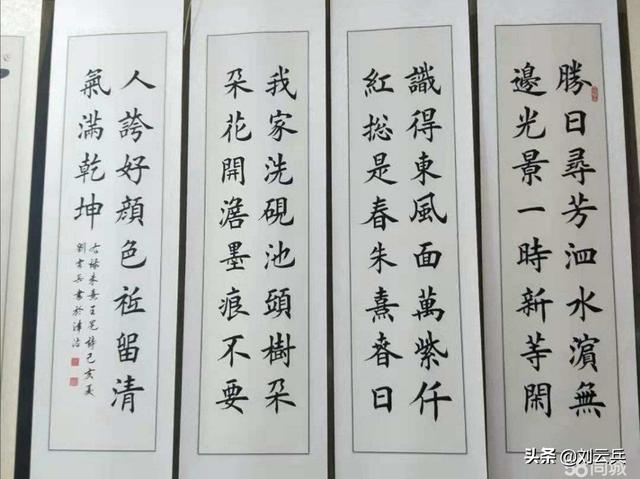 勝日尋芳泗水濵無
邊光景一時新等閑
識得東風面萬紫仟
紅捴是春朱熹春日
我家洗硯池頭樹朵
朵花開澹墨痕不要
人誇好顔色祗留清
氣滿乾坤
右録朱熹王冕詩己亥夏
劉雲兵書於津沽
头条 @刘云兵
58同城